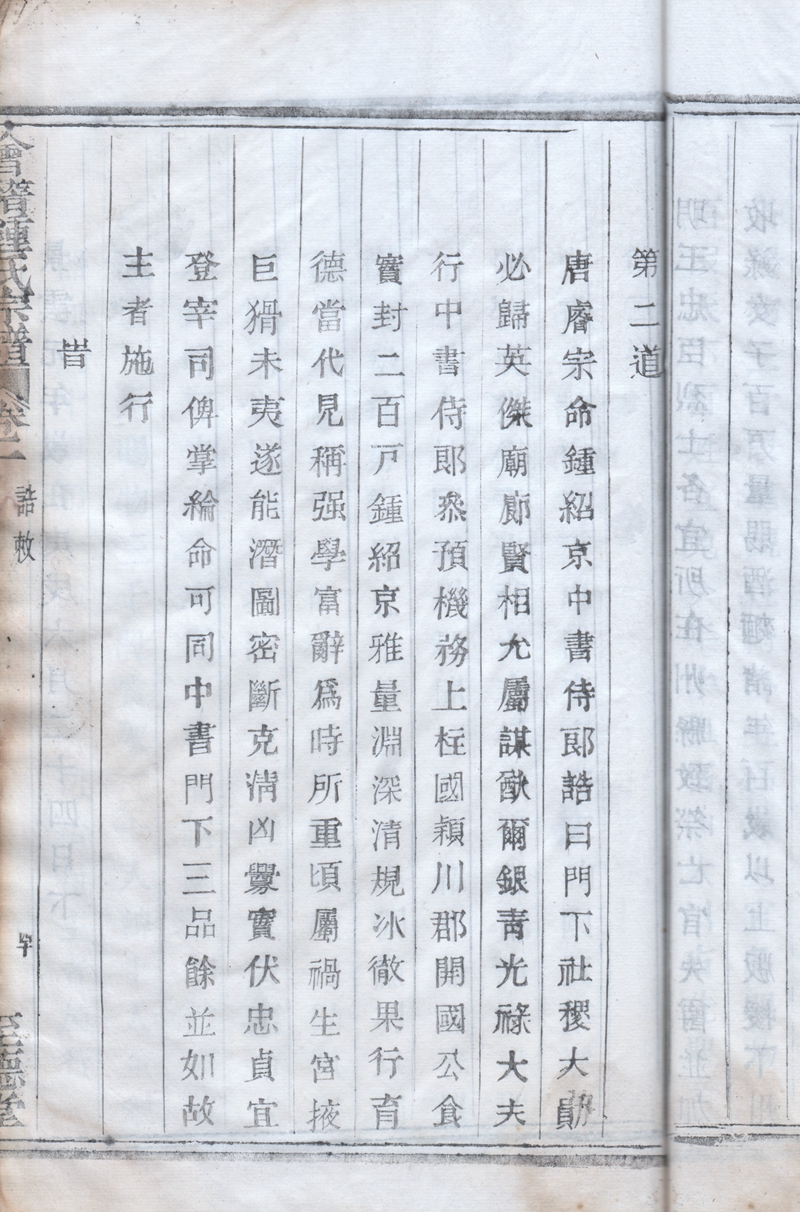 第二道
唐睿宗命鍾紹京中書侍郎誥曰門下社稷大勛
必歸英傑廟廊賢相允屬謀猷爾銀青光祿大夫
行中書侍郎叅預機務上柱國潁川郡開國公食
實封二百戶鍾紹京雅量淵深清規冰徹果行育
德當代見稱强學富辭爲時所重頃屬禍生宮掖
巨猾未夷遂能潛圖密斷克淸凶釁實伏忠貞宜
登宰司俾掌綸命可同中書門下三品餘並如故
主者施行
旹
會稽鍾氏宗譜 卷一 誥敕 至德堂